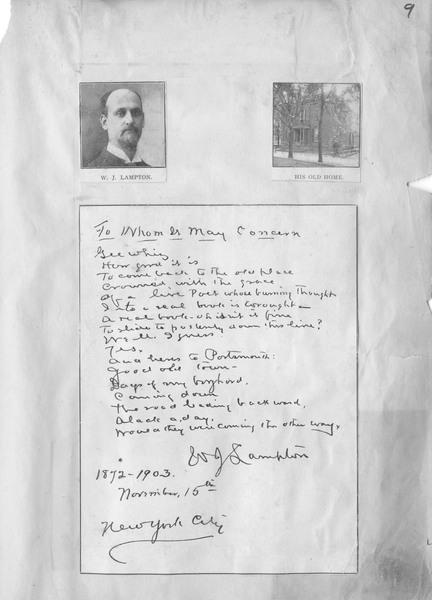 9
W. J. LAMPTON.
HIS OLD HOME.
To Whom It May Concern
Gee whiz
How good it is
To come back to the old place
Crowned with the grace
Of a live Poet whose burning Thought
Into a real book is wrought—
A real book. Oh isn't it fine
To slide to posterity down this line?
Well, I guess
Yes.
And heres to Portsmouth:
Good old town—
Days of my boyhood.
Coming down
The road leading backward,
Alack a day,
Would they were coming the other way.
W J Lampton
1872-1903.
November, 15th
New York City